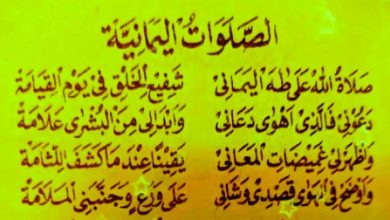 الصَّلَوَاتُ الْيَمَانِيَّة
صَلَاةُ اللهِ عَلَى طٰهَ الْيَمَانِى شَفِيْعِ الْخَلْقِ فِيْ يَوْمِ الْقِيَامَة
دَعُوْنِى فَالَّذِى اَهْوٰى دَعَانِى وَابْدَالِى مِنَ الْبُشْرٰى عَلَامَة
وَاظْهَرَنِى غَمِيْضَاتِ الْمَعَانِى يَقِيْنًا عِنْدَ مَا كَشَفَ اللِّثَامَة
وَاَوْضَحَ فِى الْهَوٰى قَصْدِى وَشَانِى عَلٰى وَرَعٍ وَجَنَّبَنِى الْمَلَامَة